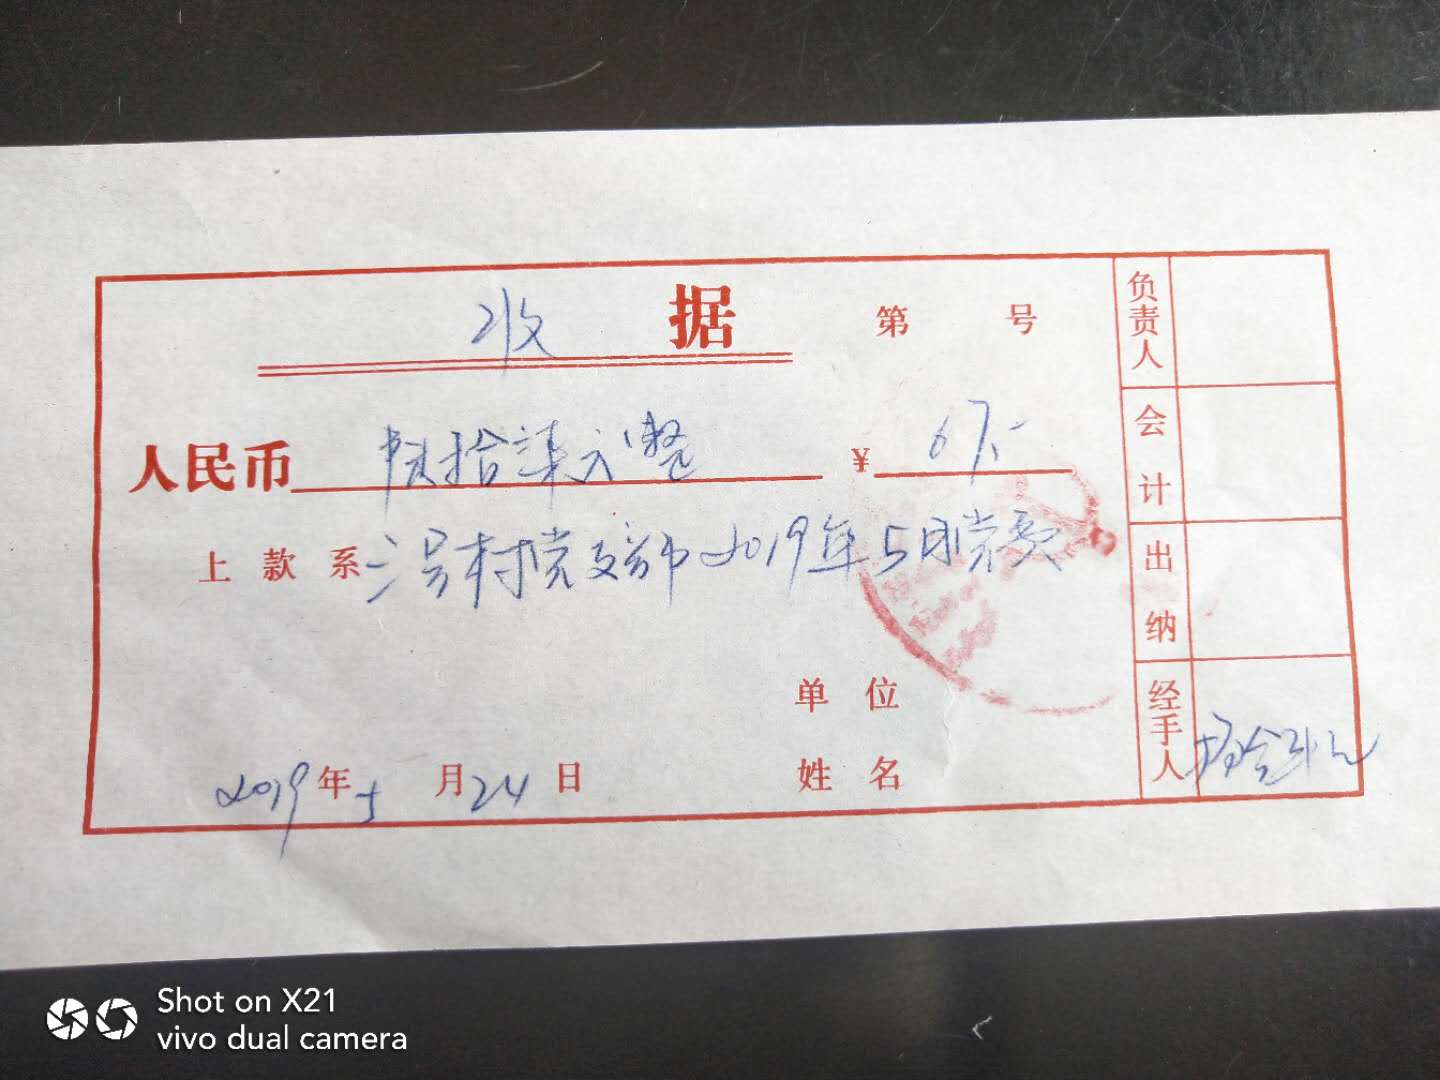 收据 第 号
人民币 陆拾柒元整 ¥ 67.-
上款系 二号村党支部2019年5月党费
单位
2019年5月24日 姓名
负责人
会计
出纳
经手人
Shot on X21
vivo dual camera